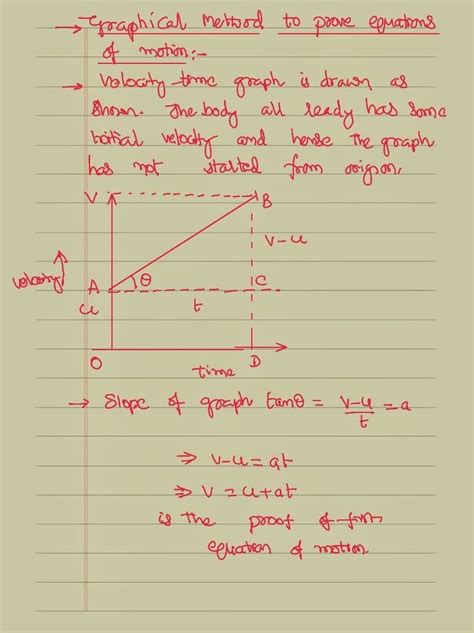 → Graphical Method to prove equations
of motion:-
→ Velocity-time graph is drawn as
shown. The body all ready has some
initial velocity and hense the graph
has not started from origion.
V
B
V-u
velocity
A
θ
C
u
t
O
time
D
→ Slope of graph tanθ = V-u/t = a
⇒ V-u = at
⇒ V = u+at
is the proof of first
equation of motion.